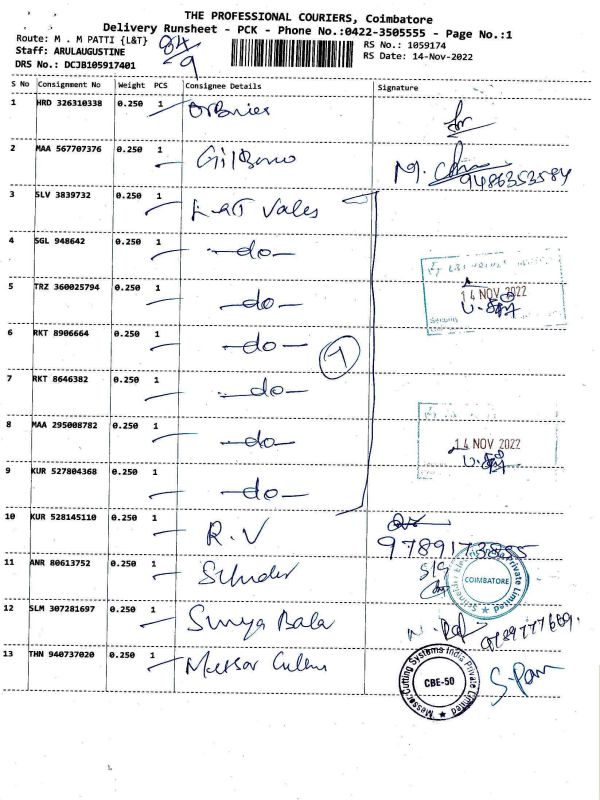 THE PROFESSIONAL COURIERS, Coimbatore
Delivery Runsheet - PCK - Phone No.:0422-3505555 - Page No.:1
Route: M . M PATTI {L&T}
84/9
RS No.: 1059174
Staff: ARULAUGUSTINE
RS Date: 14-Nov-2022
DRS No.: DCJB105917401
S No Consignment No Weight PCS Consignee Details Signature
1 HRD 326310338 0.250 1
2 MAA 567707376 0.250 1 M.
9486353584
3 SLV 3839732 0.250 1 L&T Vales
4 SGL 948642 0.250 1 -do-
5 TRZ 360025794 0.250 1 -do- 14 NOV 2022
6 RKT 8906664 0.250 1 -do- 7
7 RKT 8646382 0.250 1 -do-
8 MAA 295008782 0.250 1 -do- 14 NOV 2022
9 KUR 527804368 0.250 1 -do-
10 KUR 528145110 0.250 1 R.V
11 ANR 80613752 0.250 1 Schneider Electric Private Limited COIMBATORE
12 SLM 307281697 0.250 1 Surya Bala
13 THN 940737020 0.250 1 Messer Cutting Systems India Private Limited CBE-50